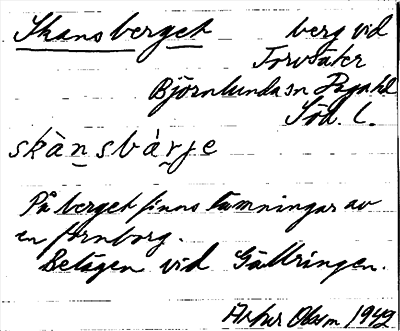 Skansberget berg vid
Torvsäter
Björnlunda sn Daga hd
Söd. L.
skànsbárje
På berget finns lämningar av
en fornborg.
Belägen vid Gällringen.
1942